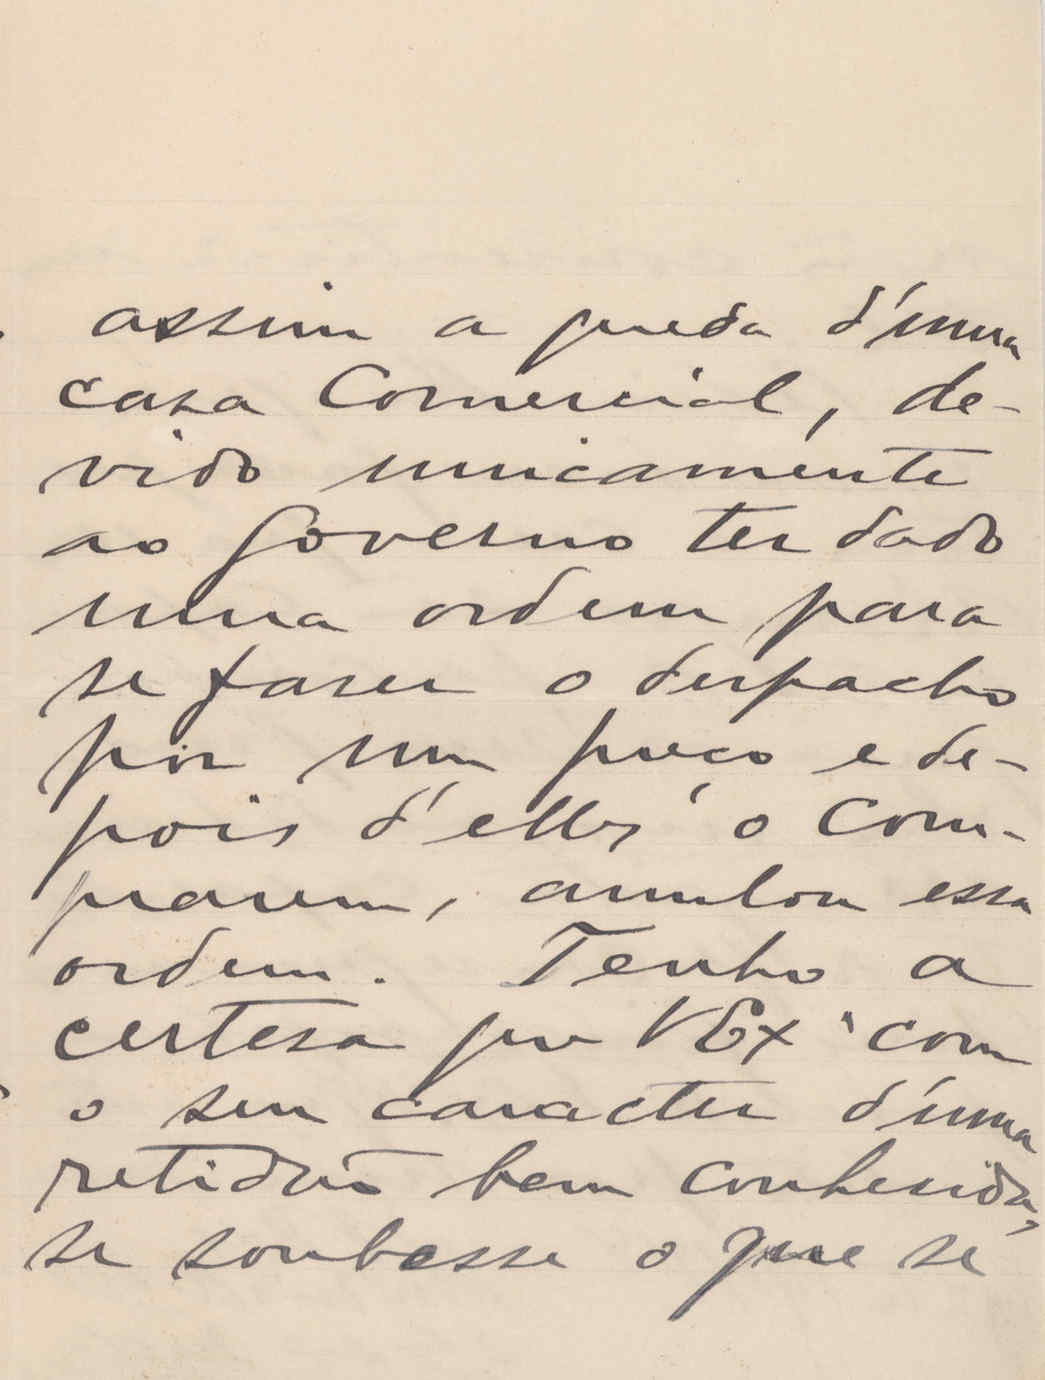 assim a queda d'uma
casa Comercial, de-
vido unicamente
ao Governo ter dado
uma ordem para
se faser o despacho
por um preço e de-
pois d'elles o com-
prarem, annulou essa
ordem. Tenho a
certesa que V Ex com
o seu caracter d'uma
retidão bem conhecida,
se soubesse o que se